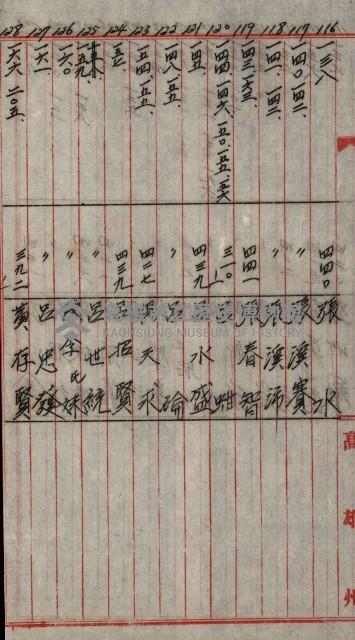 116 一三八 四四〇 張 水
117 一四〇 一四二 〃 張溪賽
118 一四一、一四二、 〃 張溪沛
119 一四三 一五三、 四四一 張春智
120 一四四、一四六、一五〇、一五五、 三一〇 蚶
121 一四五 四三九 水盛
122 一四八 一五五、 〃 呂 論
123 一五四、一五五、 四二七 天求
124 一五七 四三九 呂招賢
125 一五九、 〃 呂世統
126 一六〇 〃 李氏妹
127 一六一 〃 呂忠
128 一六六 二〇五、 三九二 黃存賢
高雄州
KAOHSIUNG MUSEUM OF HISTORY